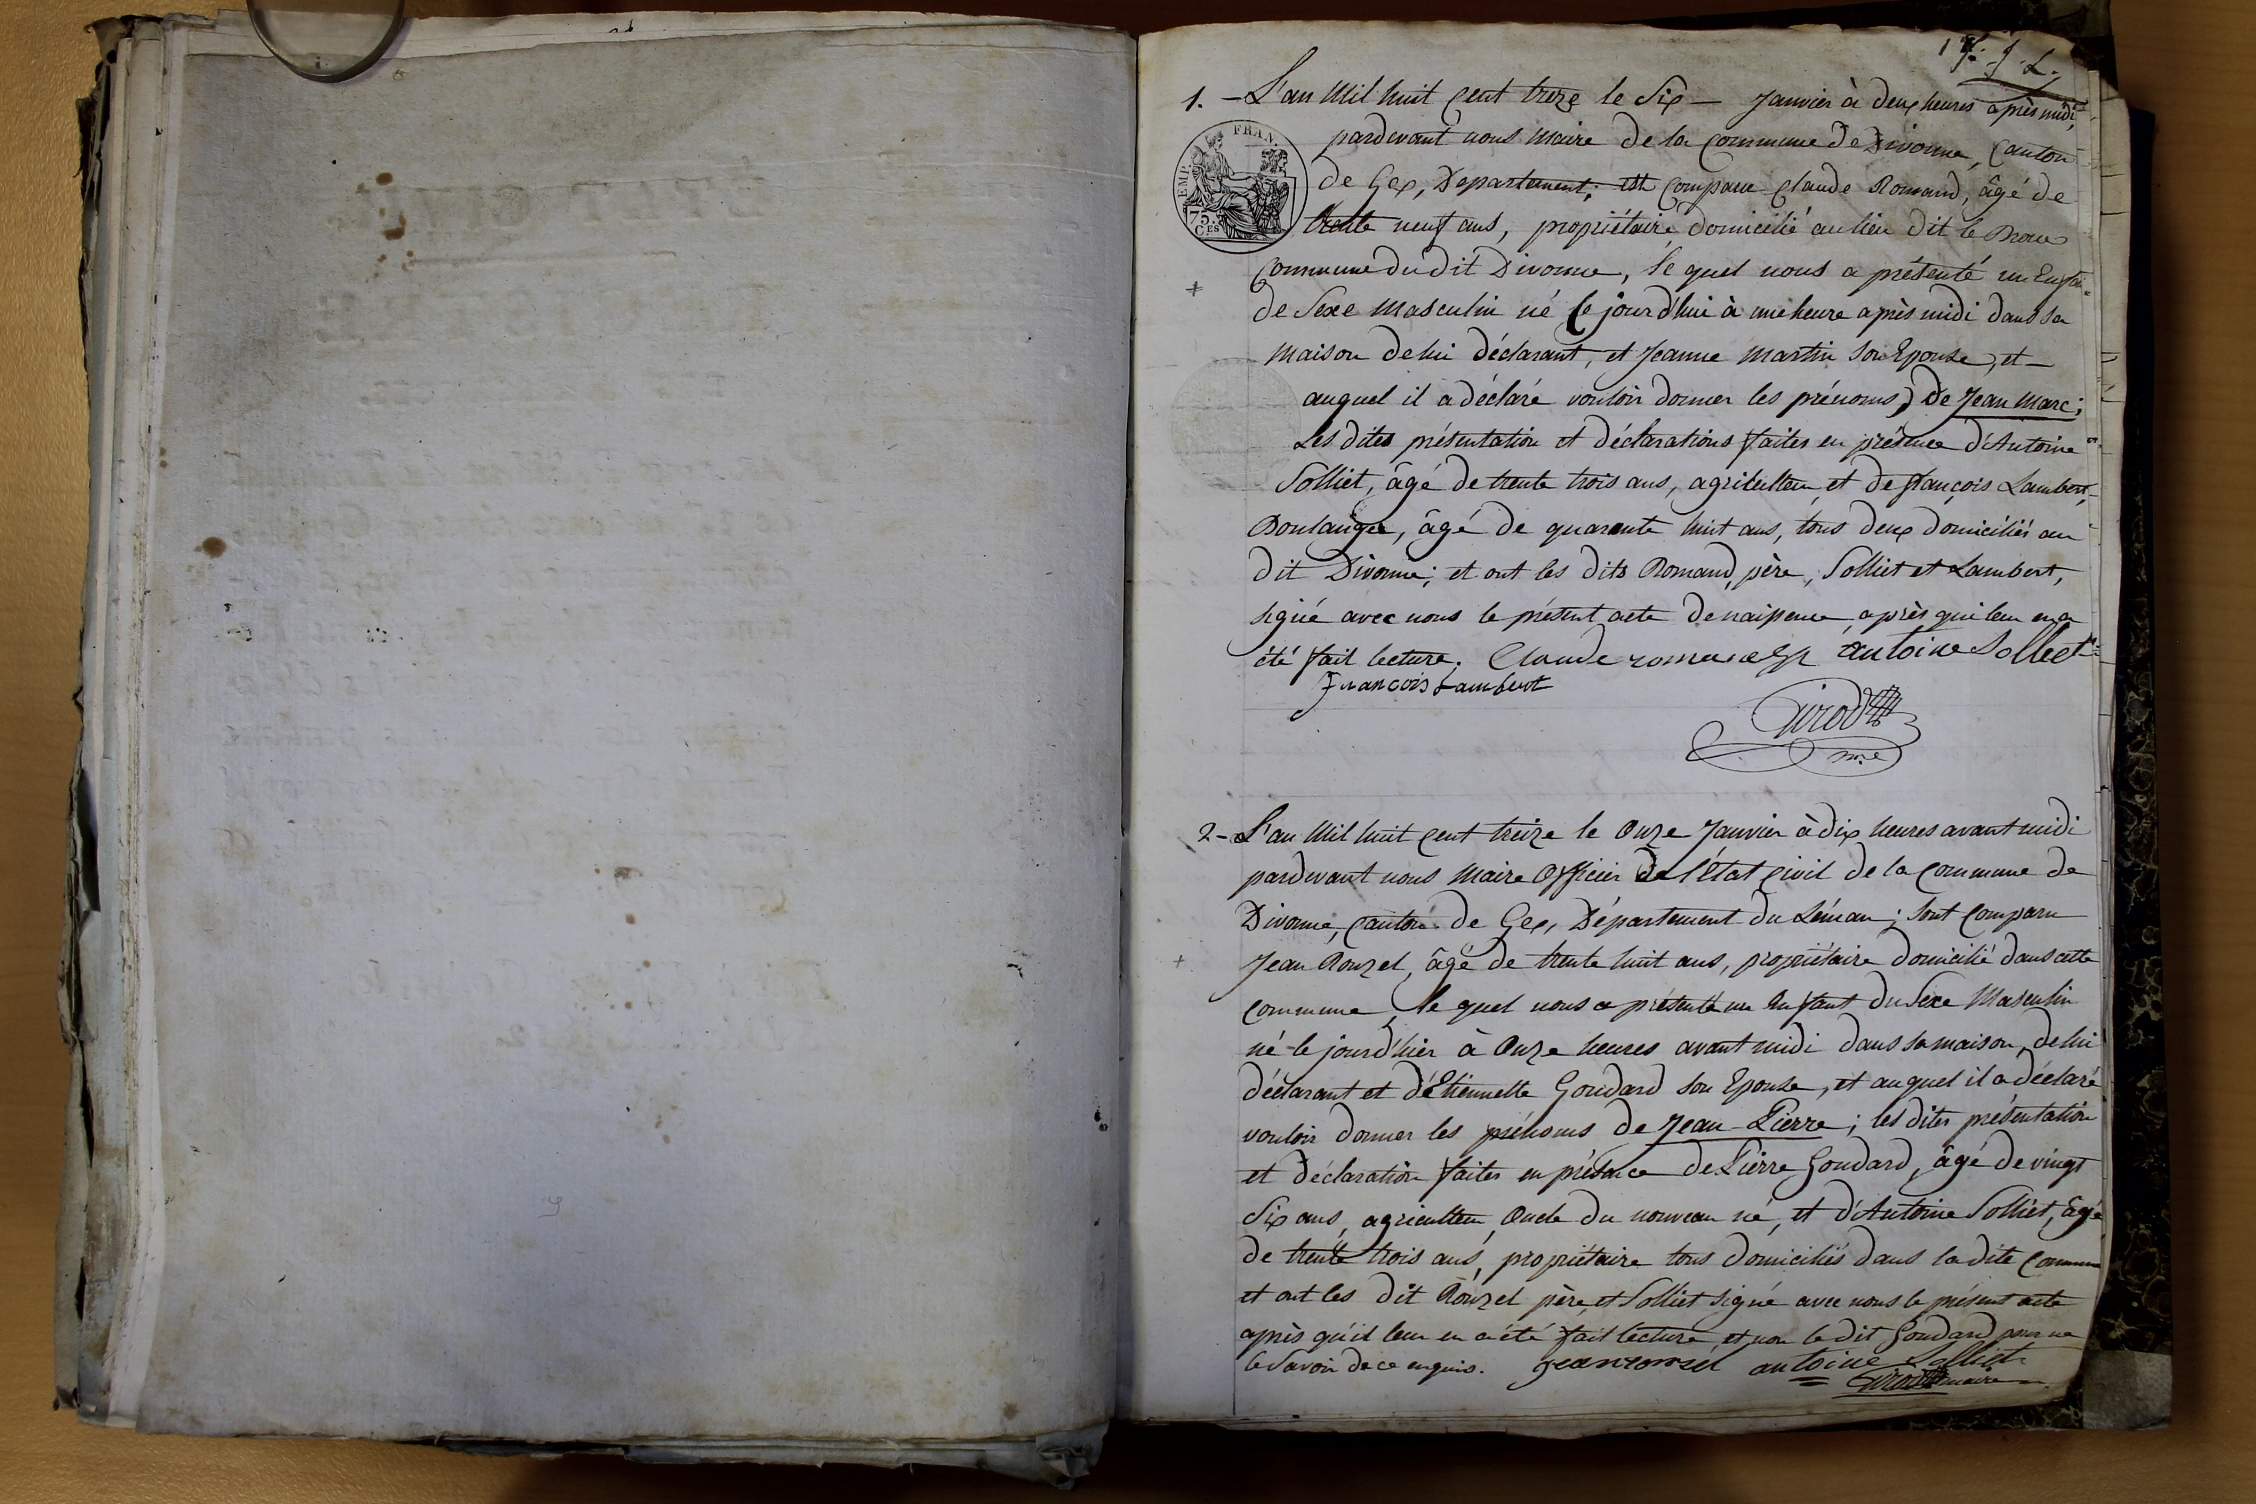 1. — L'an Mil huit Cent treze le Six — Janvier à deux heures après midi,
pardevant nous maire de la Commune de Divonne, Canton
EMP. FRAN.
75.
C.ES
de Gex, Département; est comparu Claude Romand, âgé de
trente neuf ans, propriétaire domicilié au lieu dit le
Commune du dit Divonne, le quel nous a présenté un Enfan
de Sexe masculin né le jourd'hui à une heure après midi dans sa
maison de lui déclarant, et Jeanne Martin son Epouse, et —
auquel il a déclaré vouloir donner les prénoms de Jean Marc;
Les dites présentation et déclarations faites en présence d'Antoine
Solliet, âgé de trente trois ans, agriculteur et de François Lambert,
Boulanger, âgé de quarante huit ans, tous deux domiciliés au
dit Divonne; et ont les dits Romand, père, Solliet et Lambert,
signé avec nous le présent acte de naissence après qui leur en a
été fait lecture. Claude romand Antoine Solliet
François Lambert
Girod
m.re
2 - L'an Mil huit Cent treize le Onze Janvier à dix heures avant midi
pardevant nous Maire Officier de l'État Civil de la Commune de
Divonne, Canton de Gex, Département du Léman; sont comparu
Jean Rouzet, âgé de trente huit ans, propriétaire domicilié dans cette
commune, le quel nous a présenté un Enfant du Sexe Masculin
né le jourd'hier à Onze heures avant midi dans sa maison, de lui
déclarant et d'Etiennette Goudard son Epouse, et auquel il a déclaré
vouloir donner les prénoms de Jean-Pierre; les dites présentation
et déclaration faites en présence de Pierre Goudard, âgé de vingt
Six ans, agriculteur, Oncle du nouveau né, et d'Antoine Solliet, âgé
de trente trois ans, propriétaire tous domiciliés dans la dite Commune
et ont les dit Rouzet père, et Solliet signé avec nous le présent acte
après qu'il leur en a été fait lecture et non le dit Goudard pour ne
le Savoir de ce enquis. Jean rouzet antoine Solliet
Girod maire